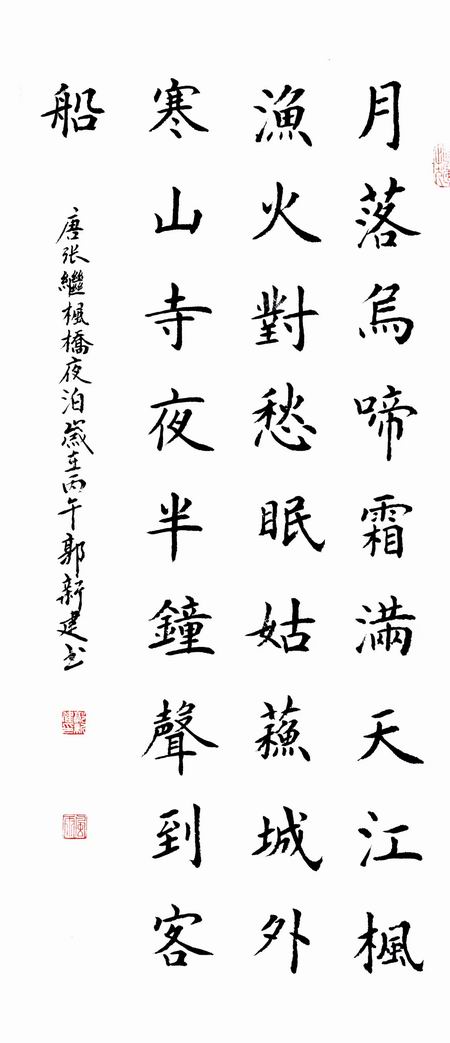 月落烏啼霜滿天江楓
漁火對愁眠姑蘓城外
寒山寺夜半鐘聲到客
船
唐张繼楓橋夜泊歲在丙午郭新建书